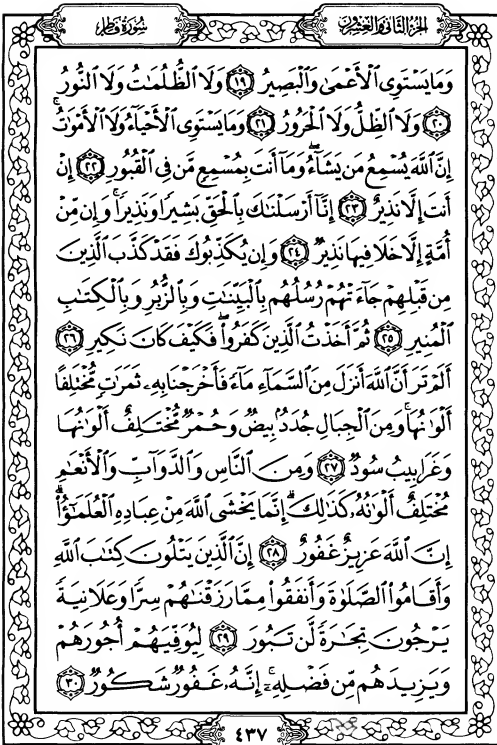 سُورَةُ فَاطِرٍ
الجُزْءُ الثَّانِي وَالعِشْرُونَ
وَمَا يَسْتَوِى ٱلْأَعْمَىٰ وَٱلْبَصِيرُ ١٩ وَلَا ٱلظُّلُمَٰتُ وَلَا ٱلنُّورُ
٢٠ وَلَا ٱلظِّلُّ وَلَا ٱلْحَرُورُ ٢١ وَمَا يَسْتَوِى ٱلْأَحْيَآءُ وَلَا ٱلْأَمْوَٰتُ ۚ
إِنَّ ٱللَّهَ يُسْمِعُ مَن يَشَآءُ ۖ وَمَآ أَنتَ بِمُسْمِعٍ مَّن فِى ٱلْقُبُورِ ٢٢ إِنْ
أَنتَ إِلَّا نَذِيرٌ ٢٣ إِنَّآ أَرْسَلْنَٰكَ بِٱلْحَقِّ بَشِيرًا وَنَذِيرًا ۚ وَإِن مِّنْ
أُمَّةٍ إِلَّا خَلَا فِيهَا نَذِيرٌ ٢٤ وَإِن يُكَذِّبُوكَ فَقَدْ كَذَّبَ ٱلَّذِينَ
مِن قَبْلِهِمْ جَآءَتْهُمْ رُسُلُهُم بِٱلْبَيِّنَٰتِ وَبِٱلزُّبُرِ وَبِٱلْكِتَٰبِ
ٱلْمُنِيرِ ٢٥ ثُمَّ أَخَذْتُ ٱلَّذِينَ كَفَرُوا۟ ۖ فَكَيْفَ كَانَ نَكِيرِ ٢٦
أَلَمْ تَرَ أَنَّ ٱللَّهَ أَنزَلَ مِنَ ٱلسَّمَآءِ مَآءً فَأَخْرَجْنَا بِهِۦ ثَمَرَٰتٍ مُّخْتَلِفًا
أَلْوَٰنُهَا ۚ وَمِنَ ٱلْجِبَالِ جُدَدٌۢ بِيضٌ وَحُمْرٌ مُّخْتَلِفٌ أَلْوَٰنُهَا
وَغَرَابِيبُ سُودٌ ٢٧ وَمِنَ ٱلنَّاسِ وَٱلدَّوَآبِّ وَٱلْأَنْعَٰمِ
مُخْتَلِفٌ أَلْوَٰنُهُۥ كَذَٰلِكَ ۗ إِنَّمَا يَخْشَى ٱللَّهَ مِنْ عِبَادِهِ ٱلْعُلَمَٰٓؤُا۟ ۗ
إِنَّ ٱللَّهَ عَزِيزٌ غَفُورٌ ٢٨ إِنَّ ٱلَّذِينَ يَتْلُونَ كِتَٰبَ ٱللَّهِ
وَأَقَامُوا۟ ٱلصَّلَوٰةَ وَأَنفَقُوا۟ مِمَّا رَزَقْنَٰهُمْ سِرًّا وَعَلَانِيَةً
يَرْجُونَ تِجَٰرَةً لَّن تَبُورَ ٢٩ لِيُوَفِّيَهُمْ أُجُورَهُمْ
وَيَزِيدَهُم مِّن فَضْلِهِۦٓ ۚ إِنَّهُۥ غَفُورٌ شَكُورٌ ٣٠
٤٣٧